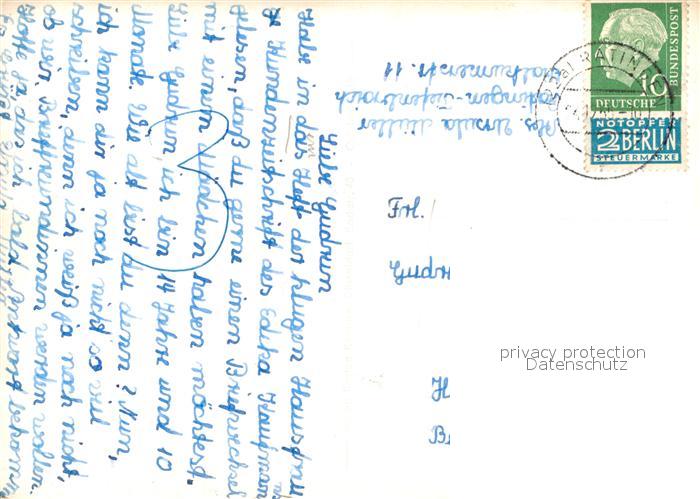 Liebe Gudrun
Habe in das Heft der klugen Hausfrau
der Kundenzeitschrift des Edeka Kaufmanns
gelesen, daß du gerne einen Briefwechsel
mit einem Mädchen haben möchtest.
Liebe Gudrun ich bin 14 Jahre und 10
Monate. Wie alt bist du denn? Nun,
ich kann dir ja noch nicht so viel
schreiben, denn ich weiß ja noch nicht,
ob wir Brieffreundinnen werden wollen.
Hoffe ja, das ich bald Antwort bekomme
Abs. Ursula Müller
Ratingen-Tiefenbroich
11
Frl.
H
B
(22a) RATIN
10
BUNDESPOST
DEUTSCHE
NOTOPFER
2 BERLIN
STEUERMARKE
privacy protection
Datenschutz